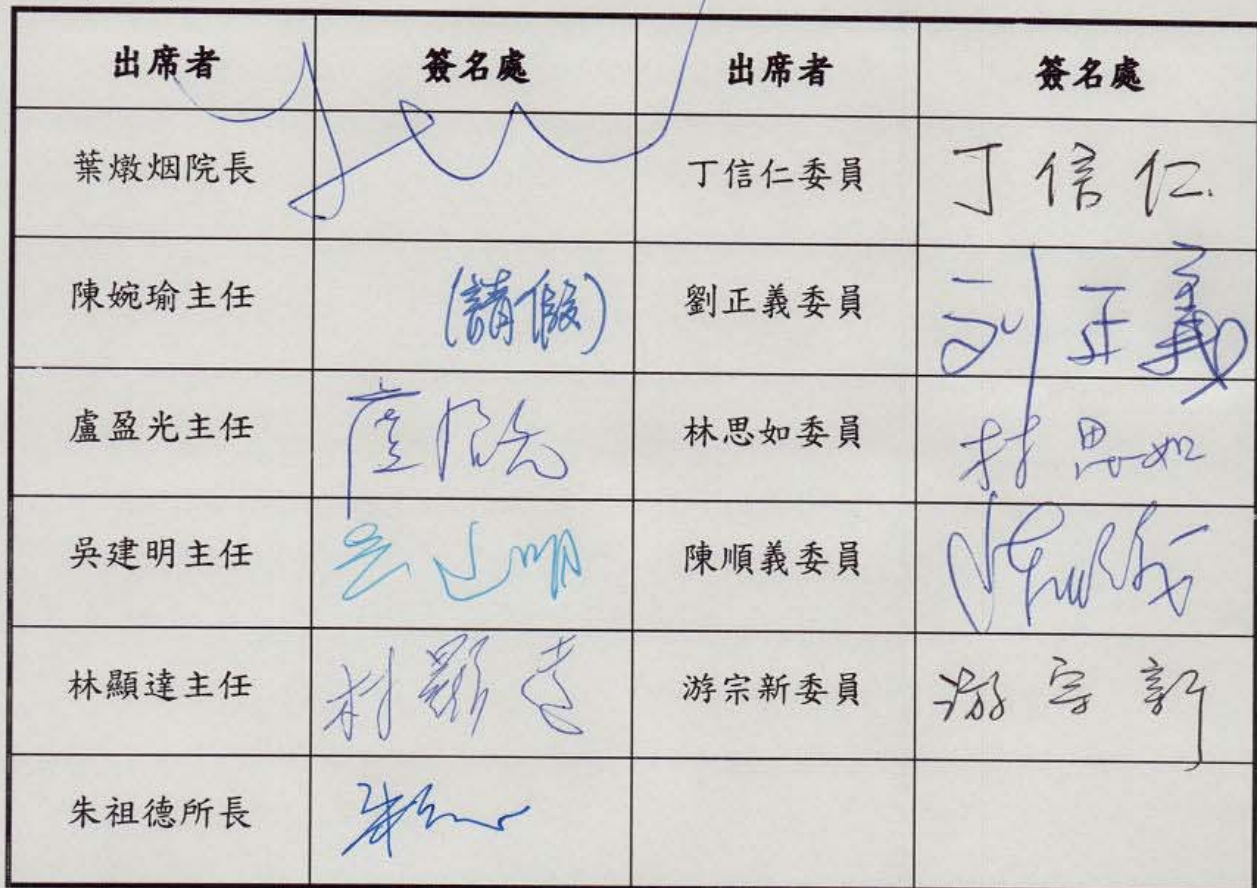 出席者 簽名處 出席者 簽名處
葉燉烟院長 丁信仁委員 丁信仁
陳婉瑜主任 (請假) 劉正義委員 刘正義
盧盈光主任 林思如委員 林思如
吳建明主任 吴建明 陳順義委員
林顯達主任 林顯達 游宗新委員 游宗新
朱祖德所長